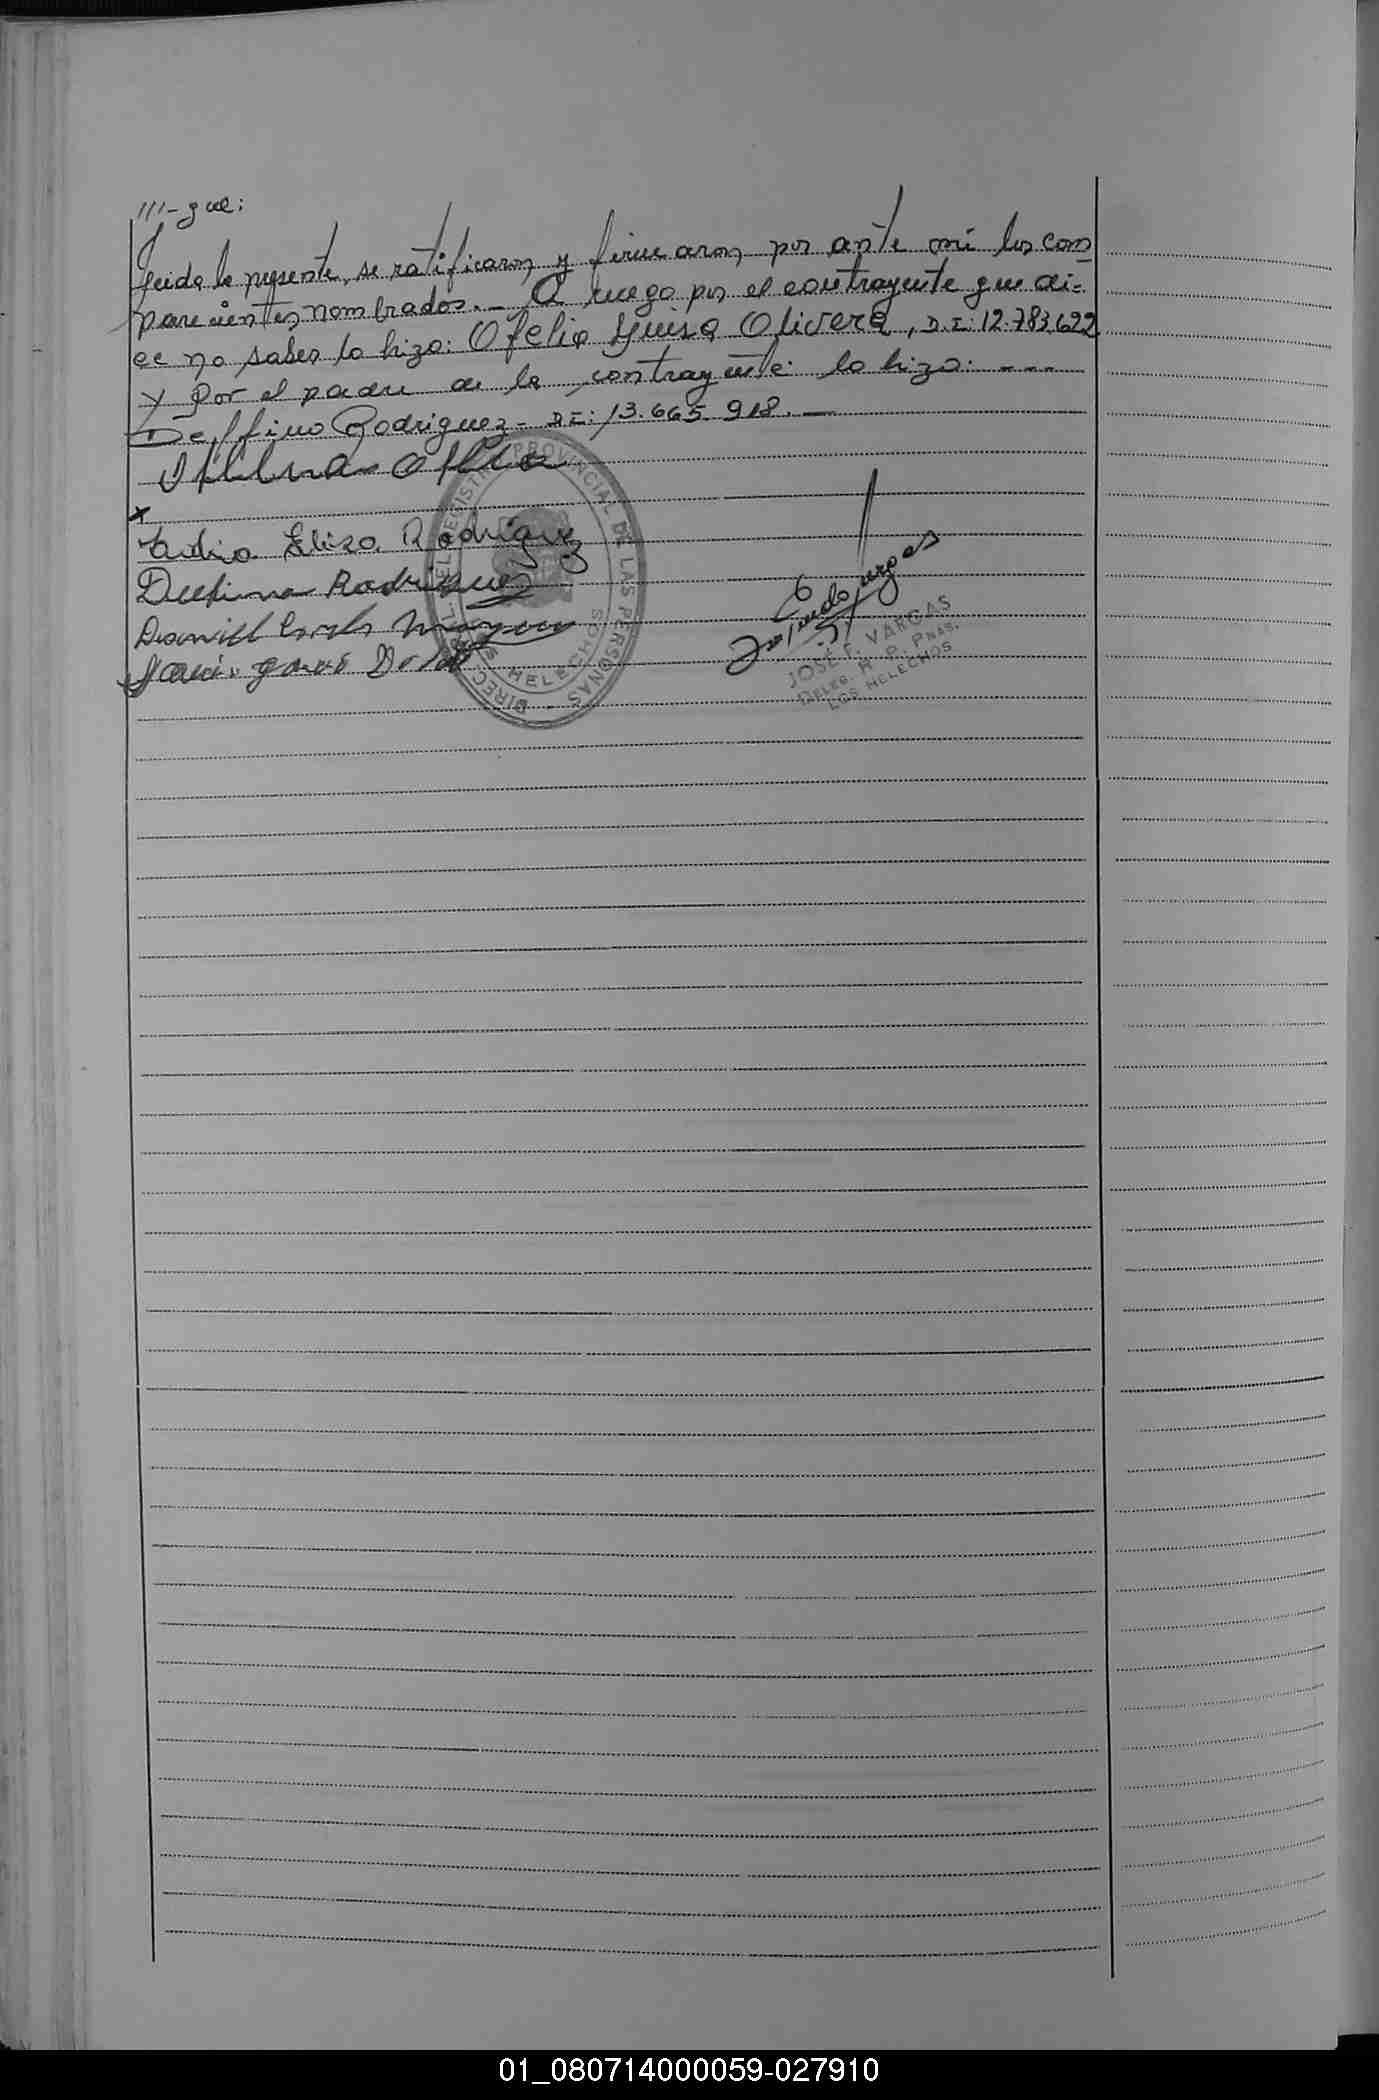 ///-gue:
Leida la presente, se ratificaron y firmaron por ante mi los com
parecientes nombrados.- A ruego por el contrayente que di-
ce no saber lo hizo: Ofelia Luisa Olivera, D.I: 12.783.622
Y por el padre de la contrayente: lo hizo: ---
Delfino Rodriguez - D.I: 13.665.918. —
Olivera Ofelia
x
Elisa Rodriguez
Delfino Rodriguez
DIRECC. GRAL. DEL REGISTRO PROVINCIAL DE LAS PERSONAS
HELECHOS
JOSÉ F. VARGAS
DELEG. R. P. PNAS.
LOS HELECHOS
01_080714000059-027910